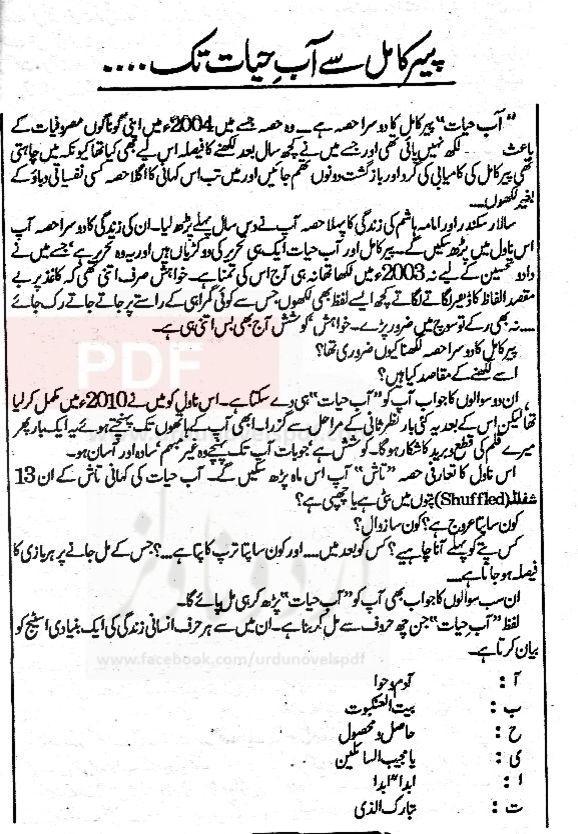 پیرِکامل سے آبِ حیات تک....
"آبِ حیات" پیرکامل کا دوسرا حصہ ہے۔ وہ حصہ جسے میں 2004ء میں اپنی گوناگوں مصروفیات کے
باعث لکھ نہیں پائی تھی اور جسے میں نے کچھ سال بعد لکھنے کا فیصلہ اس لیے بھی کیا تھا کیونکہ میں چاہتی
تھی پیرکامل کی کامیابی کی گرد اور بازگشت دونوں تھم جائیں اور میں تب اس کہانی کا اگلا حصہ کسی نفسیاتی دباؤ کے
بغیر لکھوں....
سالار سکندر اور امامہ ہاشم کی زندگی کا پہلا حصہ آپ نے دس سال پہلے پڑھ لیا۔ ان کی زندگی کا دوسرا حصہ آپ
اس ناول میں پڑھ سکیں گے۔ پیرکامل اور آب حیات ایک ہی تحریر کی دو کڑیاں ہیں اور یہ وہ تحریر ہے، جسے میں نے
داد و تحسین کے لیے نہ 2003ء میں لکھا تھا نہ ہی آج اس کی تمنا ہے۔ خواہش صرف اتنی تھی کہ کاغذ پر بے
مقصد الفاظ کا ڈھیر لگاتے لگاتے کچھ ایسے لفظ بھی لکھوں، جس سے کوئی گمراہی کے راستے پر جاتے جاتے رک جائے
.... نہ بھی رکے تو سوچ میں ضرور پڑے۔ خواہش، کوشش آج بھی بس اتنی ہی ہے۔
پیرکامل کا دوسرا حصہ لکھنا کیوں ضروری تھا؟
اسے لکھنے کے مقاصد کیا ہیں؟
ان دو سوالوں کا جواب آپ کو "آبِ حیات" ہی دے سکتا ہے۔ اس ناول کو میں نے 2010ء میں مکمل کر لیا
تھا لیکن اس کے بعد یہ کئی بار نظرثانی کے مراحل سے گزرا۔ ابھی آپ کے ہاتھوں تک پہنچتے ہوئے یہ ایک بار پھر
میرے قلم کی قطع و برید کا شکار ہوگا۔ کوشش ہے، جو بات آپ تک پہنچے وہ غیر مبہم، سادہ اور آسان ہو۔
اس ناول کا تعارفی حصہ "تاش" آپ اس ماہ پڑھ سکیں گے۔ آب حیات کی کہانی تاش کے ان 13
شفلڈ (Shuffled) پتوں میں بٹی ہے یا چھپی ہے؟
کون سا پتا عروج ہے؟ کون سا زوال؟
کس پتے کو پہلے آنا چاہیے؟ کس کو بعد میں.... اور کون سا پتا ترپ کا پتا ہے....؟ جس کے مل جانے پر ہر بازی کا
فیصلہ ہو جاتا ہے....
ان سب سوالوں کا جواب بھی آپ کو "آبِ حیات" پڑھ کر ہی مل پائے گا۔
لفظ "آبِ حیات" جن چھ حروف سے مل کر بنا ہے۔ ان میں سے ہر حرف انسانی زندگی کی ایک بنیادی اسٹیج کو
بیان کرتا ہے۔
آ : آدم و حوا
ب : بیت العنکبوت
ح : حاصل و محصول
ی : یا مجیب السائلین
ا : ابداً ابدا
ت : تبارک الذی
PDF
اردو ناولز
www.facebook.com/urdunovelspdf